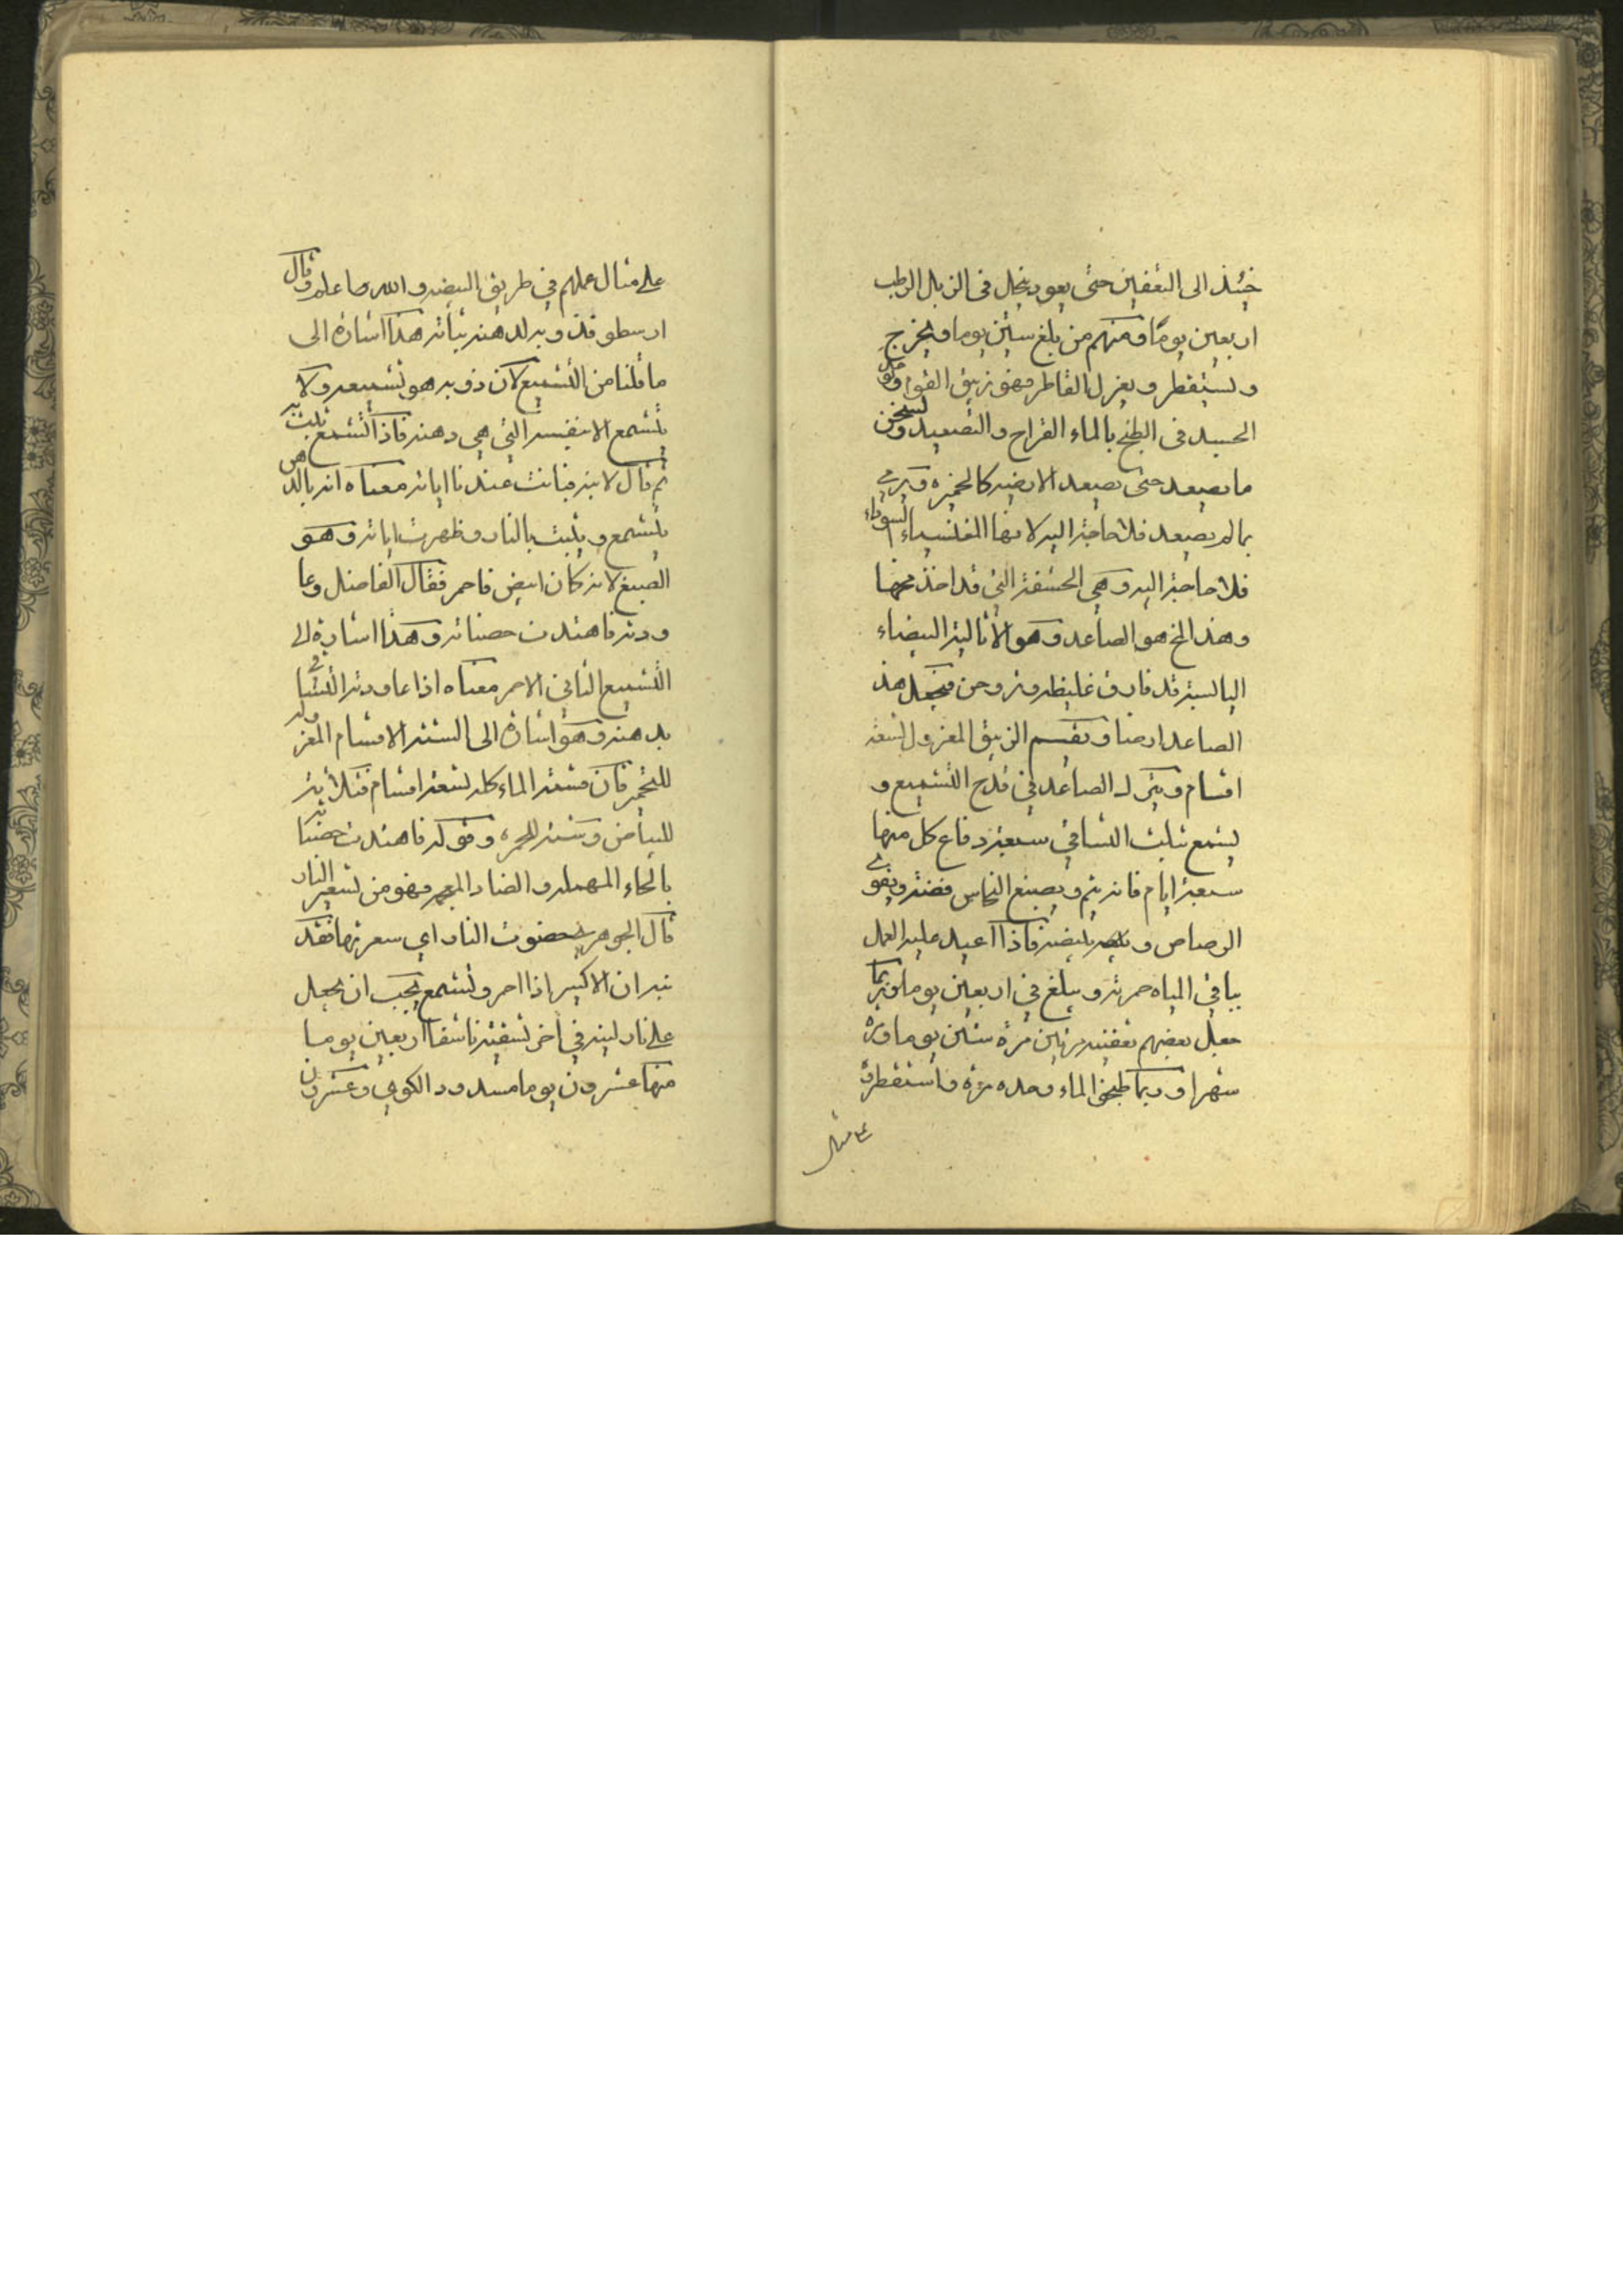 حينئذ الى التعفين حتى يعود ينحل فى الزبل الرطب
اربعين يوما ومنهم من بلغ ستين يوما ويخرج
ويستقطر ويعزل القاطر فهو زيبق القوا
الجسد فى الطبخ بالماء القراح والتصعيد
ما يصعد حتى يصعد الابيض كالخميره ويرمى
بما لم يصعد فلا حاجة اليه لانها المغنيسياء السوداء
فلا حاجة اليه وهي التى قد اخذ مخها
وهذ المخ هو الصاعد وهو الاثالية البيضاء
اليابسة قد فارق غليظه وتروحن فيجعل هذ
الصاعد ارضا ويقسم الزيبق المعزول لتسعة
اقسام ويترك الصاعد في قدح التشميع و
يشمع بثلث التساقي سبعة دفاع كل منها
سبعة ايام فانه يتم ويصبغ النحاس فضة ويقوى
الرصاص و بليضه فاذا اعيد عليه العمل
بباقي المياه حمرته ويبلغ في اربعين يوما وربما
جعل بعضهم تعفينه مرتين مرة ستين يوما ومرة
شهرا وربما طبخوا الماء وحده مرة واستقطروه
على مثال
على مثال عملهم في طريق البيضه والله ما علمه وقال
ارسطو فذوبه لدهنه بناته هذا اشارة الى
ما قلنا من التشميع لان ذوبه هو تشميعه ولا
يتشمع الا بنفسه التي هي دهنه فاذا تشمع ثبت
ثم قال لابنه فبانت عندنا اياته معناه انه بالدهن
يتشمع ويثبت بالنار وظهرت اياته وهو
الصبغ لانه كان ابيض فاحمر فقال الفاضل وعا
ودته فاهتدت حضناته وهذا اشارة الى
التشميع الثاني الاحمر معناه اذا عاودته التساقي
بدهنه وهو اشارة الى الستة الاقسام المعزوله
للتحمير فان قسمة الماء كله لتسعة اقسام فثلاثة
للبياض وستة للحمره وقوله فاهتدت حضناته
بالحاء المهمله والضاد المعجمه فهو من تسعير النار
قال الجوهرى حضوت النار اي سعرتها فقد
نبه ان الاكسير اذا احمر وتشمع يجب ان يجعل
على نار لينه في اخر تسقية ناشفا اربعين يوما
منها عشرون يوما مسدود الكوي وعشرون